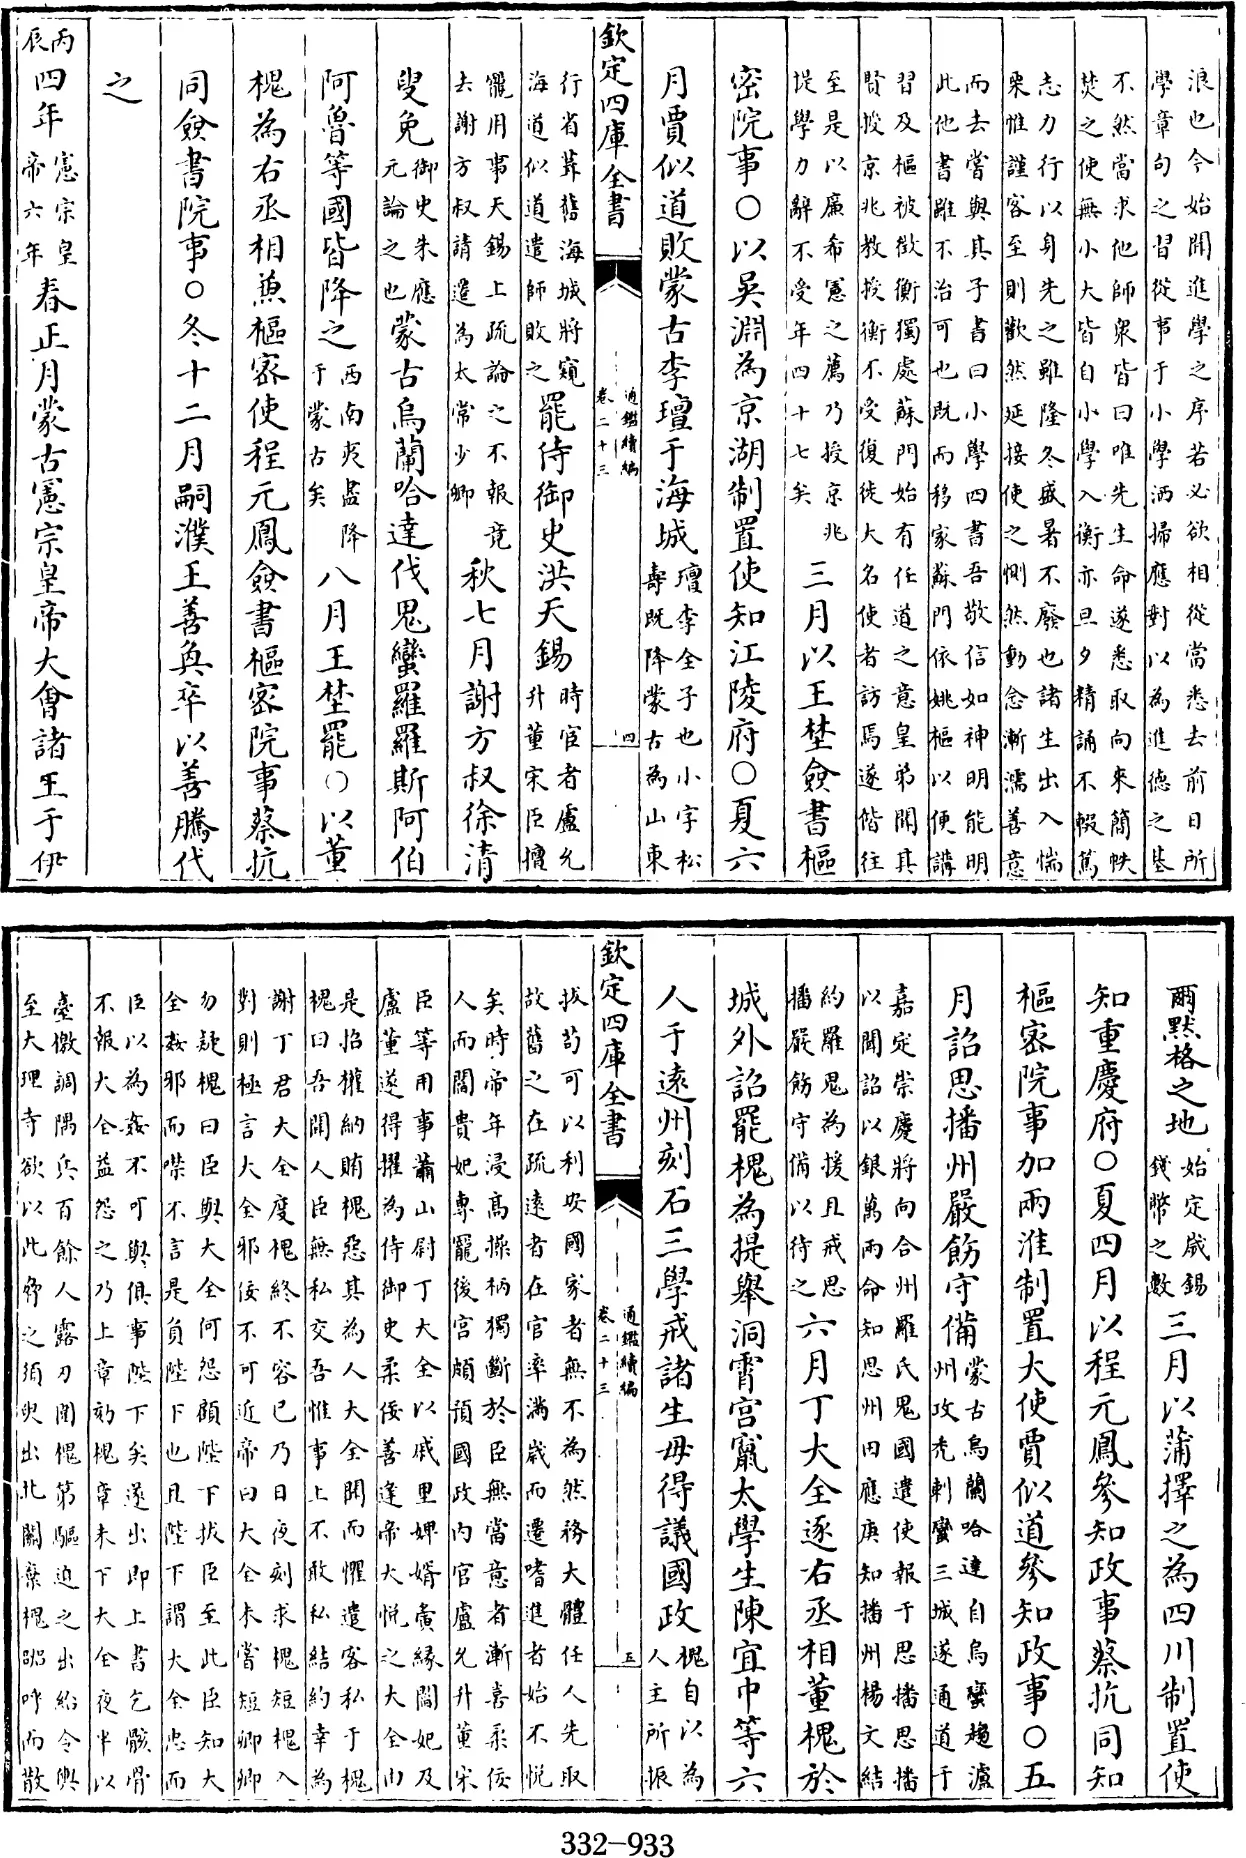 浪也今始聞進學之序若必欲相從當悉去前日所
學章句之習從事于小學洒掃應對以為進德之基
不然當求他師衆皆曰唯先生命遂悉取向來簡帙
焚之使無小大皆自小學入衡亦旦夕精誦不輟篤
志力行以身先之雖隆冬盛暑不廢也諸生出入惴
栗惟謹客至則歡然延接使之惻然動念漸濡善意
而去嘗與其子書曰小學四書吾敬信如神明能明
此他書雖不治可也既而移家蘇門依姚樞以便講
習及樞被徵衡獨處蘇門始有任道之意皇弟聞其
賢授京兆教授衡不受復徙大名使者訪焉遂偕往
至是以廉希憲之薦乃授京兆
提學力辭不受年四十七矣
三月以王埜僉書樞
密院事○以吳淵為京湖制置使知江陵府○夏六
月賈似道敗蒙古李璮于海城
璮李全子也小字松
壽既降蒙古為山東
欽定四庫全書
通鑑續編
卷二十三
四
行省葺舊海城將窺
海道似道遣師敗之
罷侍御史洪天錫
時宦者盧允
升董宋臣擅
寵用事天錫上疏論之不報竟
去謝方叔請遣為太常少卿
秋七月謝方叔徐清
叟免
御史朱應
元論之也
蒙古烏蘭哈達伐鬼蠻羅羅斯阿伯
阿魯等國皆降之
西南夷盡降
于蒙古矣
八月王埜罷○以董
槐為右丞相兼樞密使程元鳳僉書樞密院事蔡抗
同僉書院事○冬十二月嗣濮王善奐卒以善騰代
之
丙
辰
四年
憲宗皇
帝六年
春正月蒙古憲宗皇帝大會諸王于伊
爾默格之地
始定歲錫
錢幣之數
三月以蒲擇之為四川制置使
知重慶府○夏四月以程元鳳參知政事蔡抗同知
樞密院事加兩淮制置大使賈似道參知政事○五
月詔思播州嚴飭守備
蒙古烏蘭哈達自烏蠻趨瀘
州攻禿剌蠻三城遂通道于
嘉定崇慶將向合州羅氏鬼國遣使報于思播思播
以聞詔以銀萬兩命知思州田應庚知播州楊文結
約羅鬼為援且戒思
播嚴飭守備以待之
六月丁大全逐右丞相董槐於
城外詔罷槐為提舉洞霄宮竄太學生陳宜中等六
人于遠州刻石三學戒諸生毋得議國政
槐自以為
人主所振
欽定四庫全書
通鑑續編
卷二十三
五
拔苟可以利安國家者無不為然務大體任人先取
故舊之在疏遠者在官率滿歲而遷嗜進者始不悅
矣時帝年浸高操柄獨斷於臣無當意者漸喜柔佞
人而閻貴妃專寵後宮頗預國政內官盧允升董宋
臣等用事蕭山尉丁大全以戚里婢婿夤緣閻妃及
盧董遂得擢為侍御史柔佞善逢帝大悅之大全由
是招權納賄槐惡其為人大全聞而懼遣客私于槐
槐曰吾聞人臣無私交吾惟事上不敢私結約幸為
謝丁君大全度槐終不容已乃日夜刻求槐短槐入
對則極言大全邪佞不可近帝曰大全未嘗短卿卿
勿疑槐曰臣與大全何怨顧陛下拔臣至此臣知大
全姦邪而噤不言是負陛下也且陛下謂大全忠而
臣以為姦不可與俱事陛下矣遂出即上書乞骸骨
不報大全益怨之乃上章劾槐章未下大全夜半以
臺檄調隅兵百餘人露刃圍槐第驅迫之出紿令輿
至大理寺欲以此脅之須臾出北關棄槐嘂呼而散
332-933